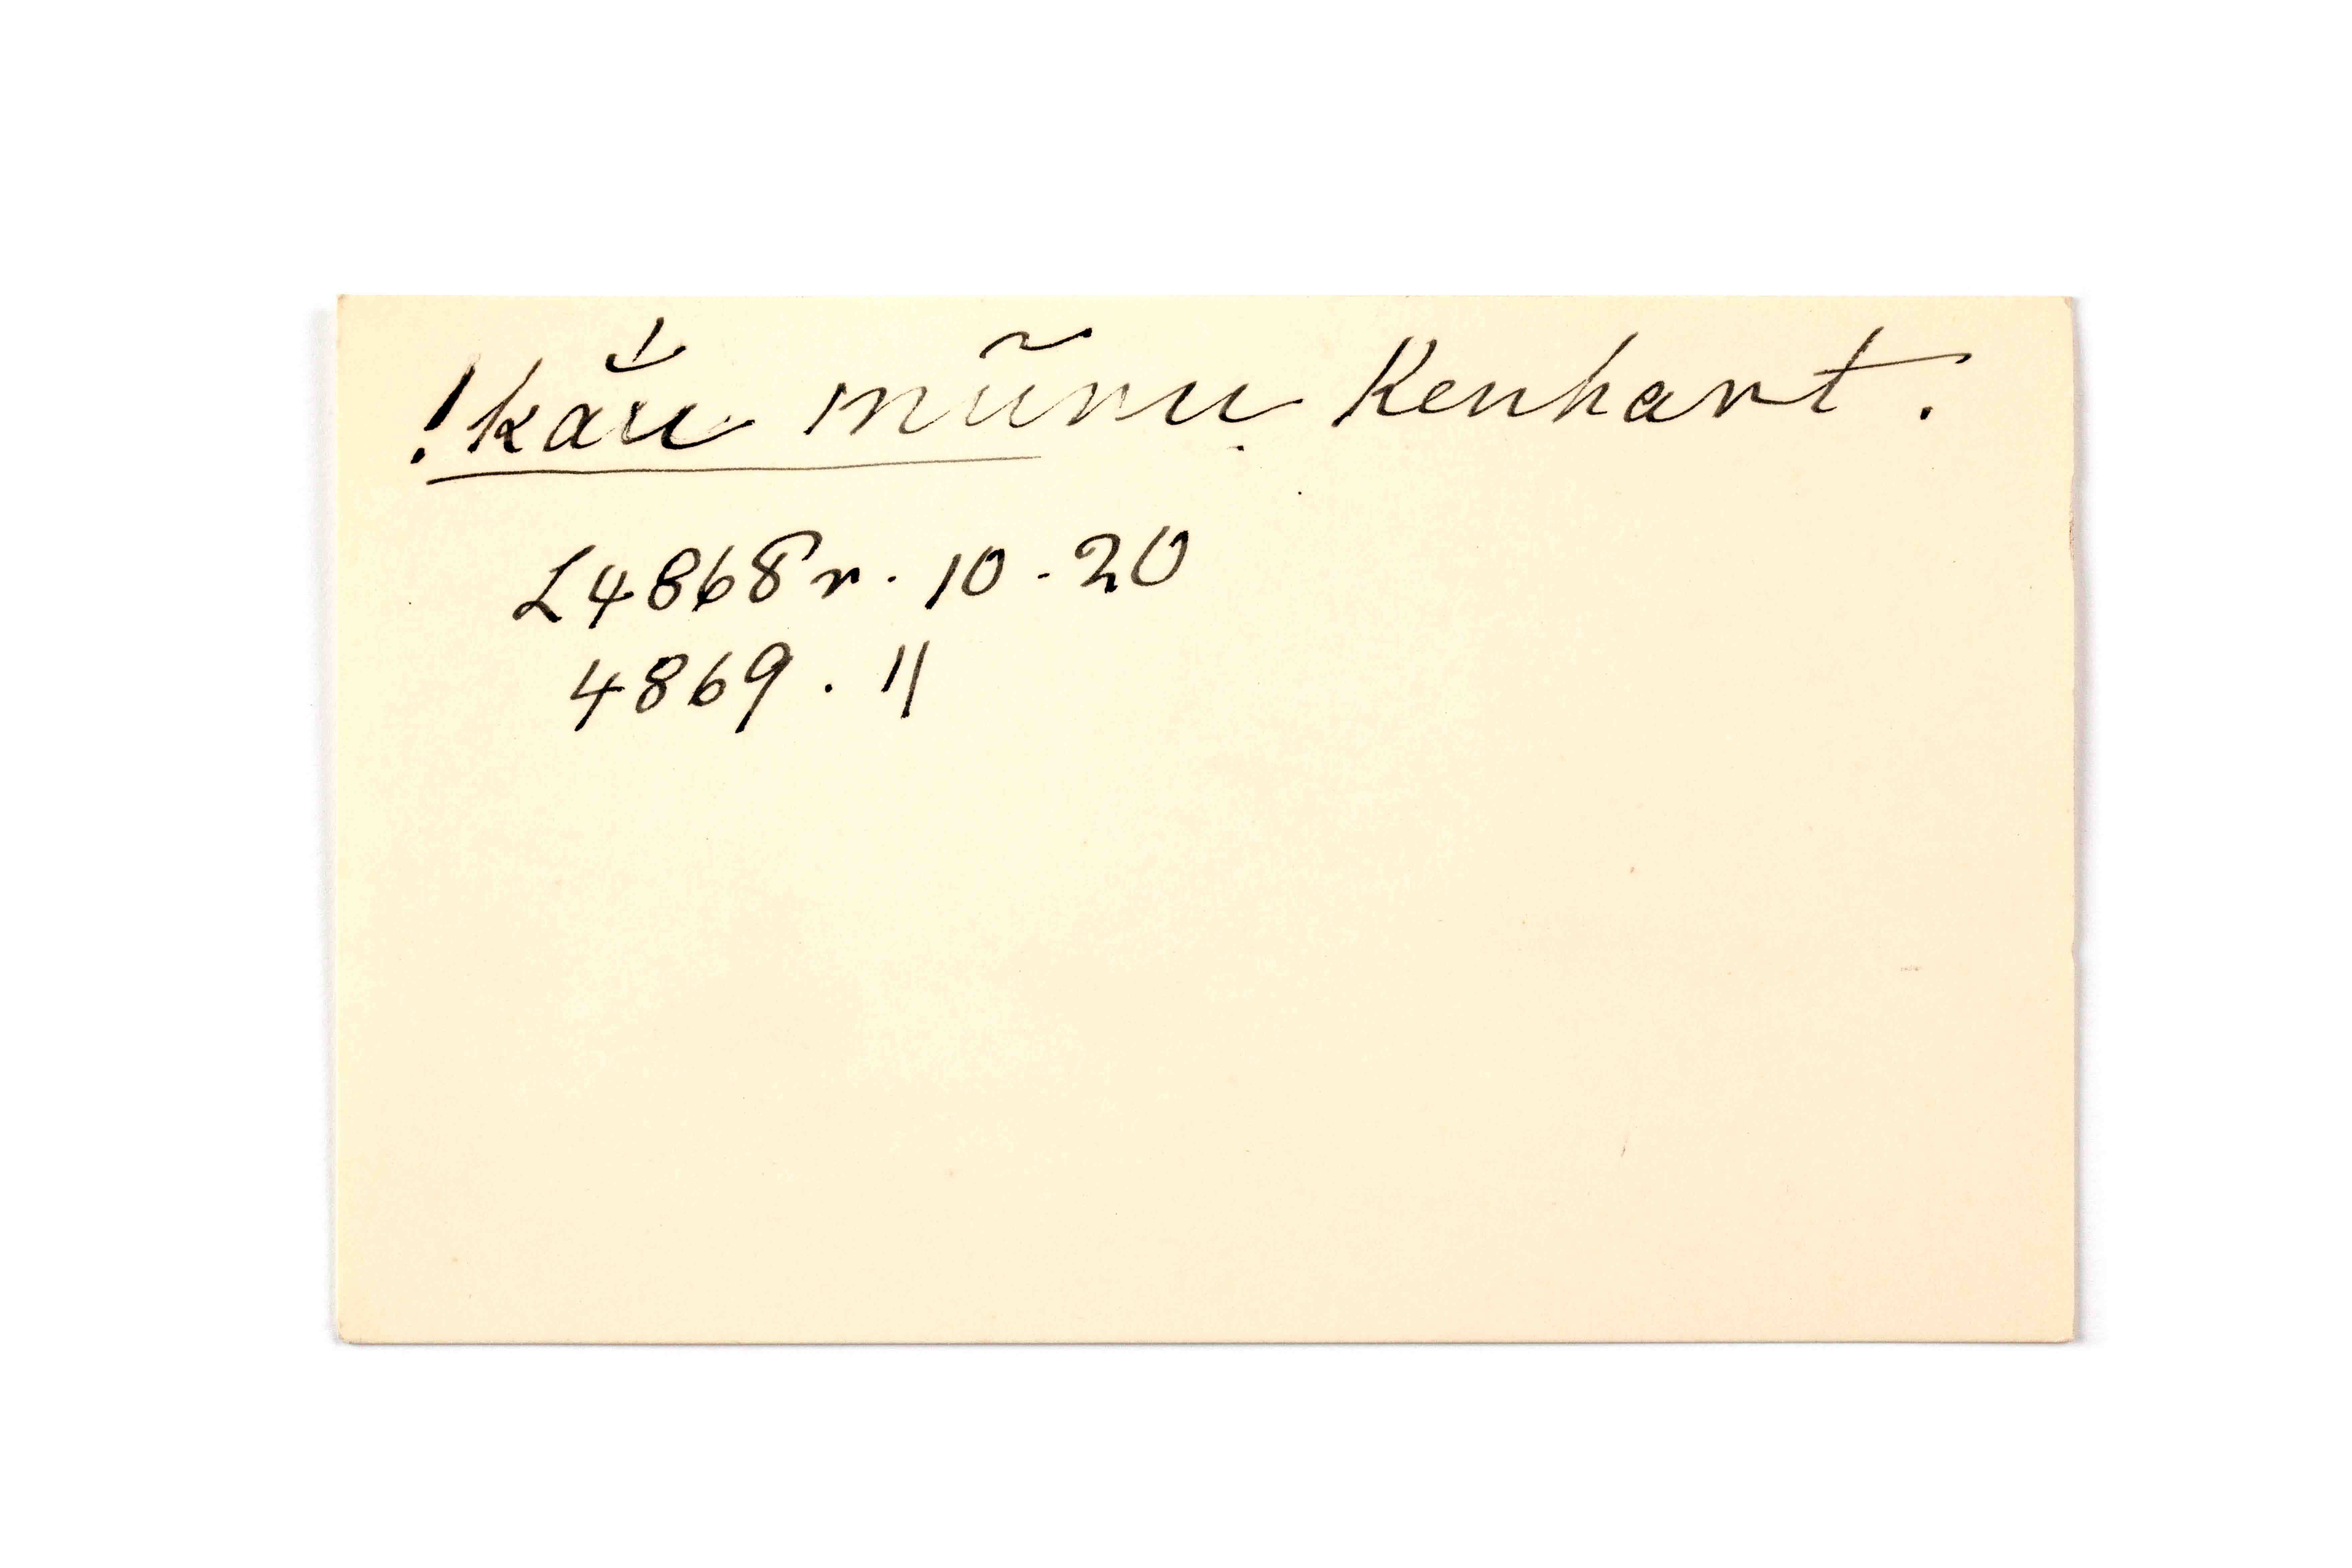 !kắu mũnụ Kenhart.
L4868r. 10-20
4869. 11